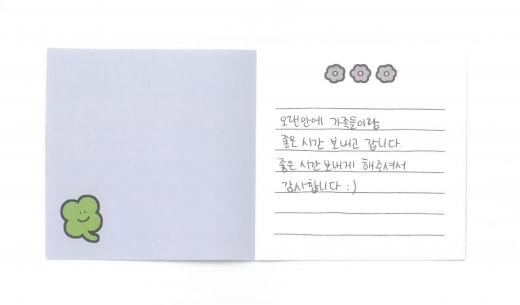 오랜만에 가족들이랑
좋은 시간 보내고 갑니다
좋은 시간 보내게 해주셔서
감사합니다 :)